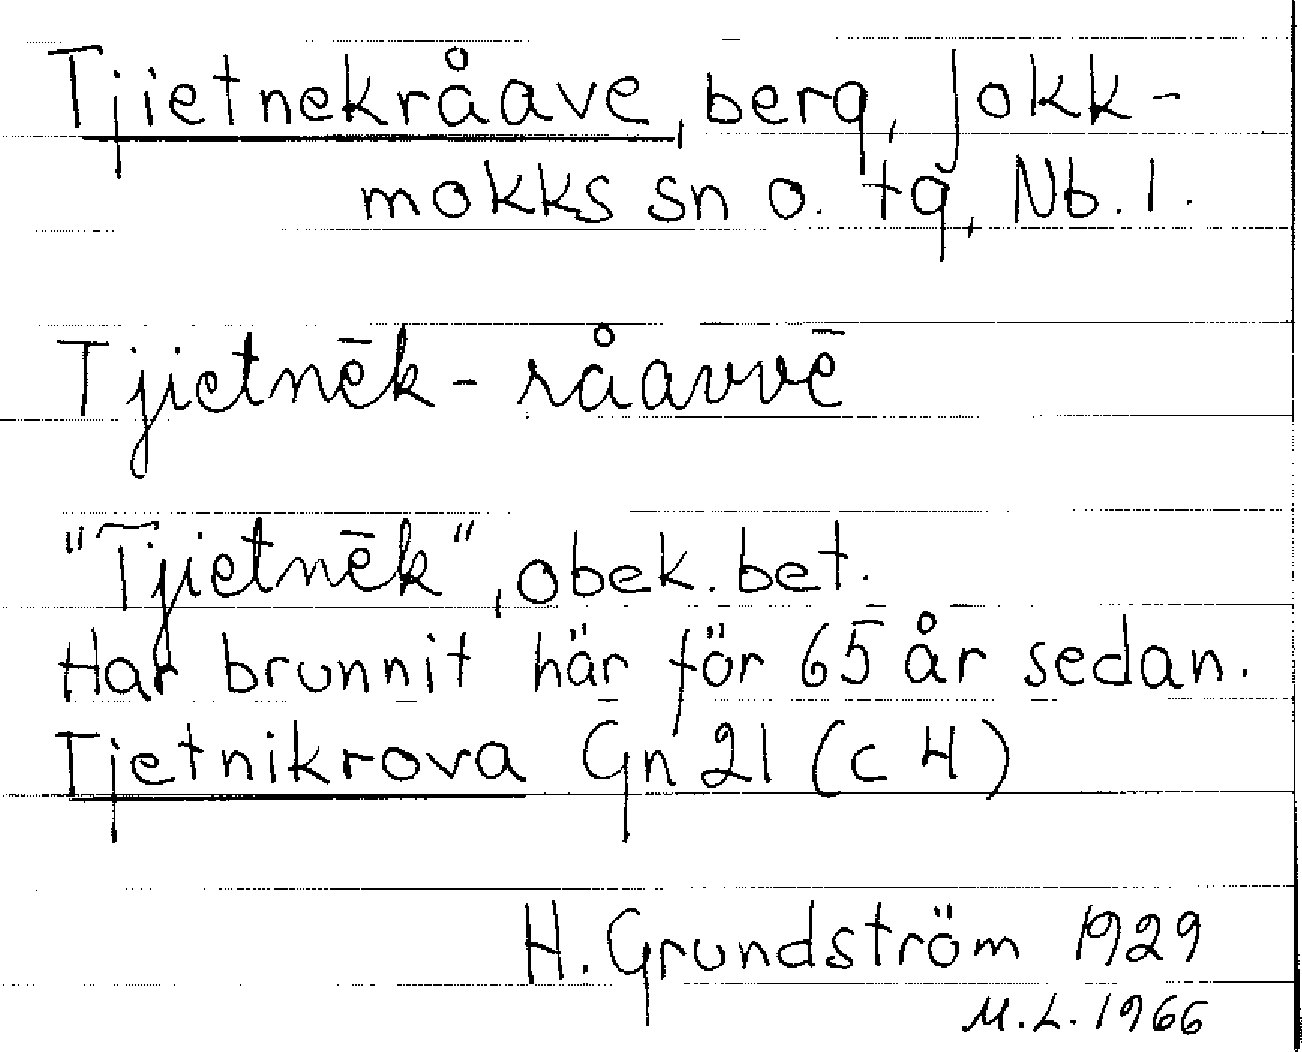 Tjietnekråave, berg, Jokk-
mokks sn o. tg, Nb. l.
Tjietnēk - råavvē
"Tjietnēk", obek. bet.
Har brunnit här för 65 år sedan.
Tjetnikrova Gn 21 (c H)
H. Grundström 1929
M.L. 1966